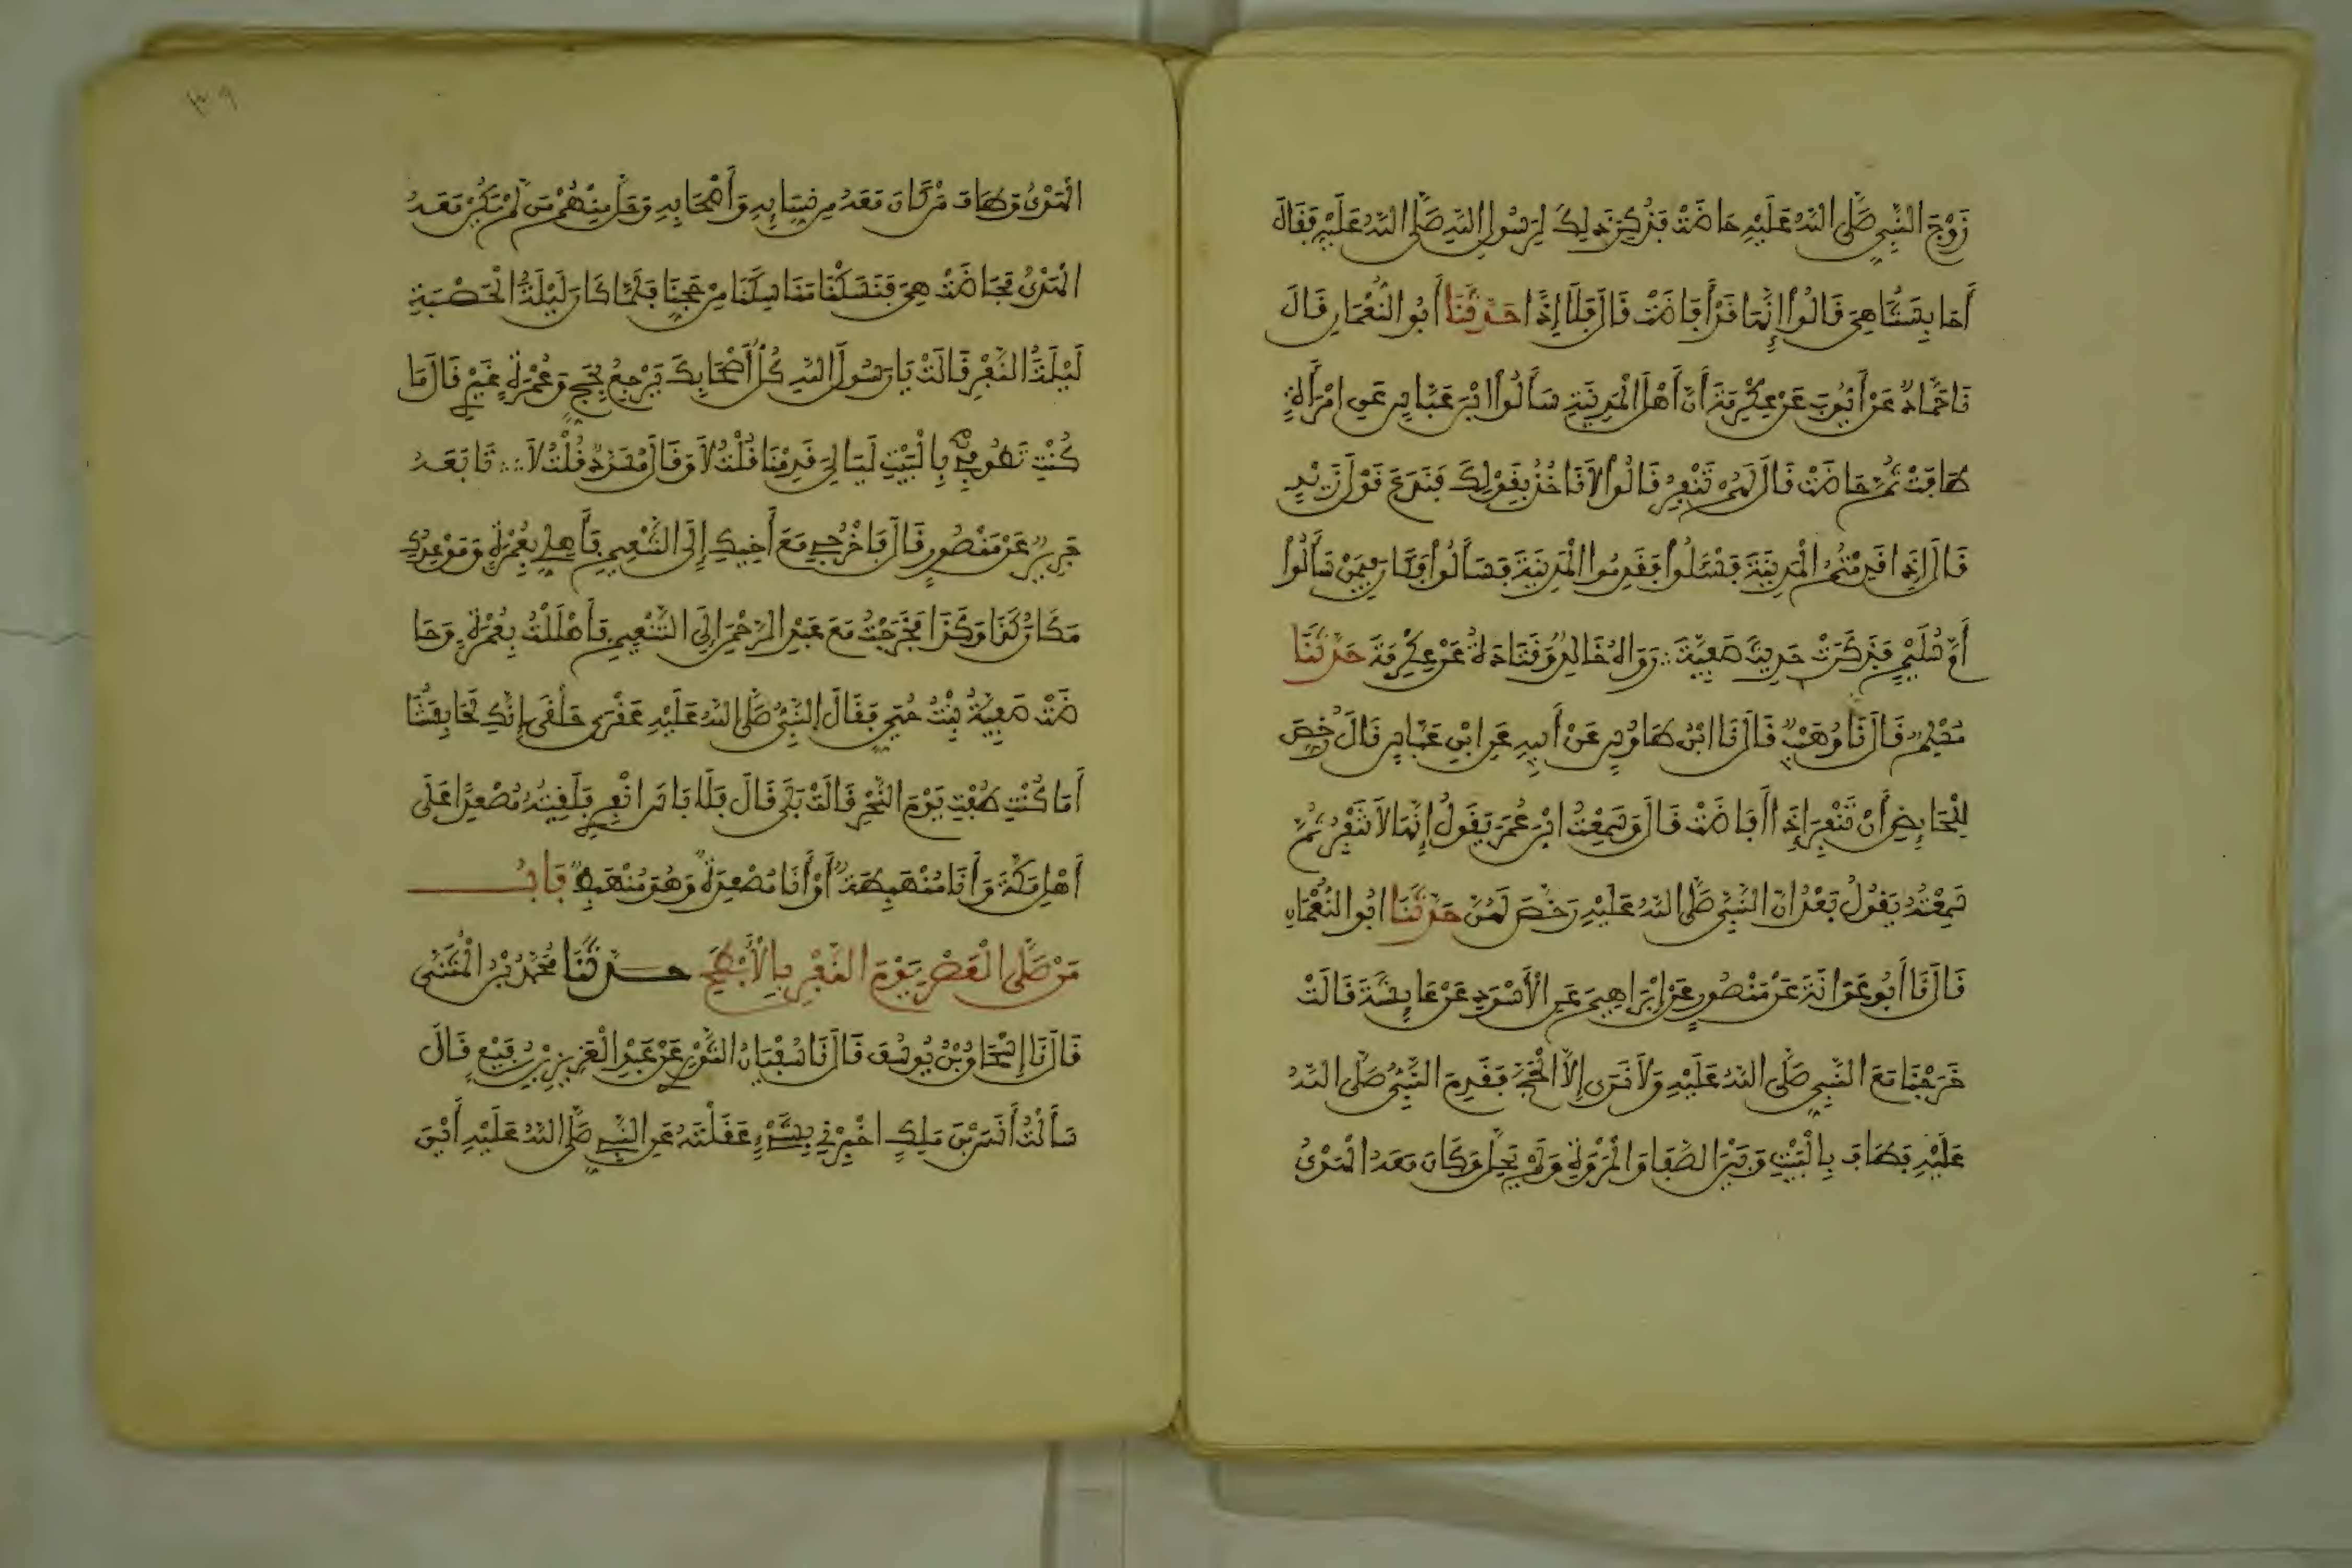 زَوْجَ النَّبِيِّ صَلَّى اللهُ عَلَيْهِ حَاضَتْ فَذُكِرَ ذَلِكَ لِرَسُولِ اللهِ صَلَّى اللهُ عَلَيْهِ فَقَالَ
أَحَابِسَتُنَا هِيَ قَالُوا إِنَّهَا قَدْ أَفَاضَتْ قَالَ فَلَا إِذًا حَدَّثَنَا أَبُو النُّعْمَانِ قَالَ
نَا حَمَّادٌ عَنْ أَيُّوبَ عَنْ عِكْرِمَةَ أَنَّ أَهْلَ الْمَدِينَةِ سَأَلُوا ابْنَ عَبَّاسٍ عَنِ امْرَأَةٍ
طَافَتْ ثُمَّ حَاضَتْ قَالَ لَهُمْ تَنْفِرُ قَالُوا لَا نَاخُذُ بِقَوْلِكَ فَنَدَعَ قَوْلَ زَيْدٍ
قَالَ إِذَا قَدِمْتُمُ الْمَدِينَةَ فَسْئَلُوا فَقَدِمُوا الْمَدِينَةَ فَسَأَلُوا فَكَانَ فِيمَنْ سَأَلُوا
أُمُّ سُلَيْمٍ فَذَكَرَتْ حَدِيثَ صَفِيَّةَ ∴ رَوَاهُ خَالِدٌ وَقَتَادَةُ عَنْ عِكْرِمَةَ حَدَّثَنَا
مُسْلِمٌ قَالَ نَا وُهَيْبٌ قَالَ نَا ابْنُ طَاوُسٍ عَنْ أَبِيهِ عَنِ ابْنِ عَبَّاسٍ قَالَ رُخِّصَ
لِلْحَائِضِ أَنْ تَنْفِرَ إِذَا أَفَاضَتْ قَالَ وَسَمِعْتُ ابْنَ عُمَرَ يَقُولُ إِنَّهَا لَا تَنْفِرُ ثُمَّ
سَمِعْتُهُ يَقُولُ بَعْدُ انَّ النَّبِيَّ صَلَّى اللهُ عَلَيْهِ رَخَّصَ لَهُنَّ حَدَّثَنَا ابُو النُّعْمَانِ
قَالَ نَا أَبُو عَوَانَةَ عَنْ مَنْصُورٍ عَنْ إِبْرَاهِيمَ عَنِ الْأَسْوَدِ عَنْ عَائِشَةَ قَالَتْ
خَرَجْنَا مَعَ النَّبِيِّ صَلَّى اللهُ عَلَيْهِ وَلَا نَرَى إِلَّا الْحَجَّ فَقَدِمَ النَّبِيُّ صَلَّى اللهُ
عَلَيْهِ فَطَافَ بِالْبَيْتِ وَبَيْنَ الصَّفَا وَالْمَرْوَةِ وَلَمْ يَحِلَّ وَكَانَ مَعَهُ الْهَدْيُ
١٣٩
الْهَدْيُ وَطَافَ مَنْ كَانَ مَعَهُ مِن نِسَائِهِ وَأَصْحَابِهِ وَحَلَّ مِنْهُمْ مَن لَمْ يَكُنْ مَعَهُ
الْهَدْيُ فَحَاضَتْ هِيَ فَنَسَكْنَا مَنَاسِكَنَا مِنْ حَجِّنَا فَلَمَّا كَانَ لَيْلَةُ الْحَصْبَةِ
لَيْلَةُ النَّفْرِ قَالَتْ يَا رَسُولَ اللهِ كُلُّ أَصْحَابِكَ يَرْجِعُ بِحَجٍّ وَعُمْرَةٍ غَيْرِي قَالَ مَا
كُنْتِ تَطُوفِي بِالْبَيْتِ لَيَالِيَ قَدِمْنَا قُلْتُ لَا وَقَالَ مُسَدَّدٌ قُلْتُ لَا ∴ تَابَعَهُ
جَرِيرٌ عَنْ مَنْصُورٍ قَالَ فَاخْرُجِي مَعَ أَخِيكِ إِلَى التَّنْعِيمِ فَأَهِلِّي بِعُمْرَةٍ وَمَوْعِدُكِ
مَكَانُ كَذَا وَكَذَا فَخَرَجْتُ مَعَ عَبْدِ الرَّحْمَنِ إِلَى التَّنْعِيمِ فَأَهْلَلْتُ بِعُمْرَةٍ وَحَا
ضَتْ صَفِيَّةُ بِنْتُ حُيَيٍّ فَقَالَ النَّبِيُّ صَلَّى اللهُ عَلَيْهِ عَقْرَى حَلْقَى إِنَّكِ لَحَابِسَتُنَا
أَمَا كُنْتِ طُفْتِ يَوْمَ النَّحْرِ قَالَتْ بَلَى قَالَ فَلَا بَاسَ انْفِرِي فَلَقِيتُهُ مُصْعِدًا عَلَى
أَهْلِ مَكَّةَ وَأَنَا مُنْهَبِطَةٌ أَوْ أَنَا مُصْعِدَةٌ وَهُوَ مُنْهَبِطٌ بَابُ
مَنْ صَلَّى الْعَصْرَ يَوْمَ النَّفْرِ بِالْأَبْطَحِ حَدَّثَنَا مُحَمَّدُ بْنُ الْمُثَنَّى
قَالَ نَا إِسْحَاقُ بْنُ يُوسُفَ قَالَ نَا سُفْيَانُ الثَّوْرِيُّ عَنْ عَبْدِ الْعَزِيزِ بْنِ رُفَيْعٍ قَالَ
سَأَلْتُ أَنَسَ بْنَ مَلِكٍ اخْبِرْنِي بِشَيْءٍ عَقَلْتَهُ عَنِ النَّبِيِّ صَلَّى اللهُ عَلَيْهِ أَيْنَ